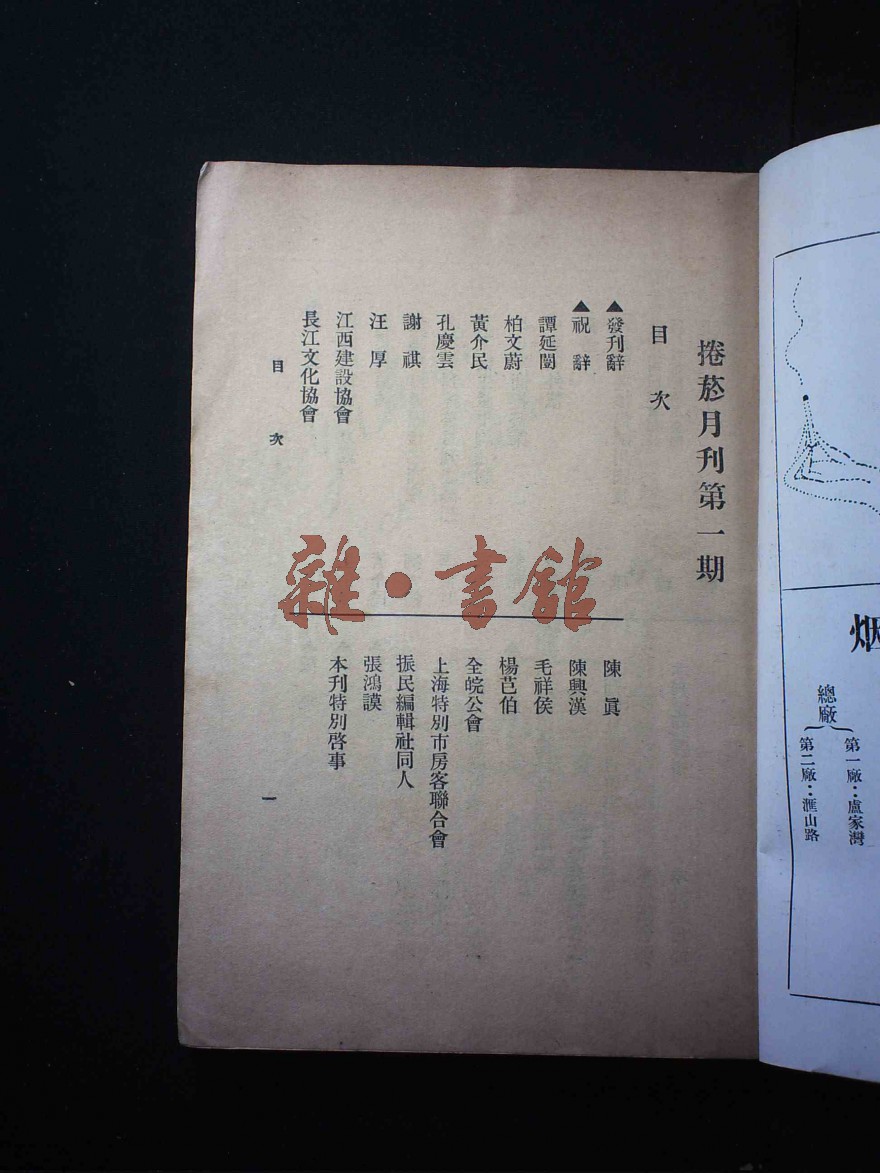 捲菸月刊第一期
目次
▲發刊辭
▲祝辭
譚延闓
柏文蔚
黃介民
孔慶雲
謝祺
汪厚
江西建設協會
長江文化協會
陳眞
陳興漢
毛祥侯
楊芑伯
全皖公會
上海特別市房客聯合會
振民編輯社同人
張鴻謨
本刊特別啓事
目次
一
雜·書館
烟
總廠
第一廠：盧家灣
第二廠：滙山路